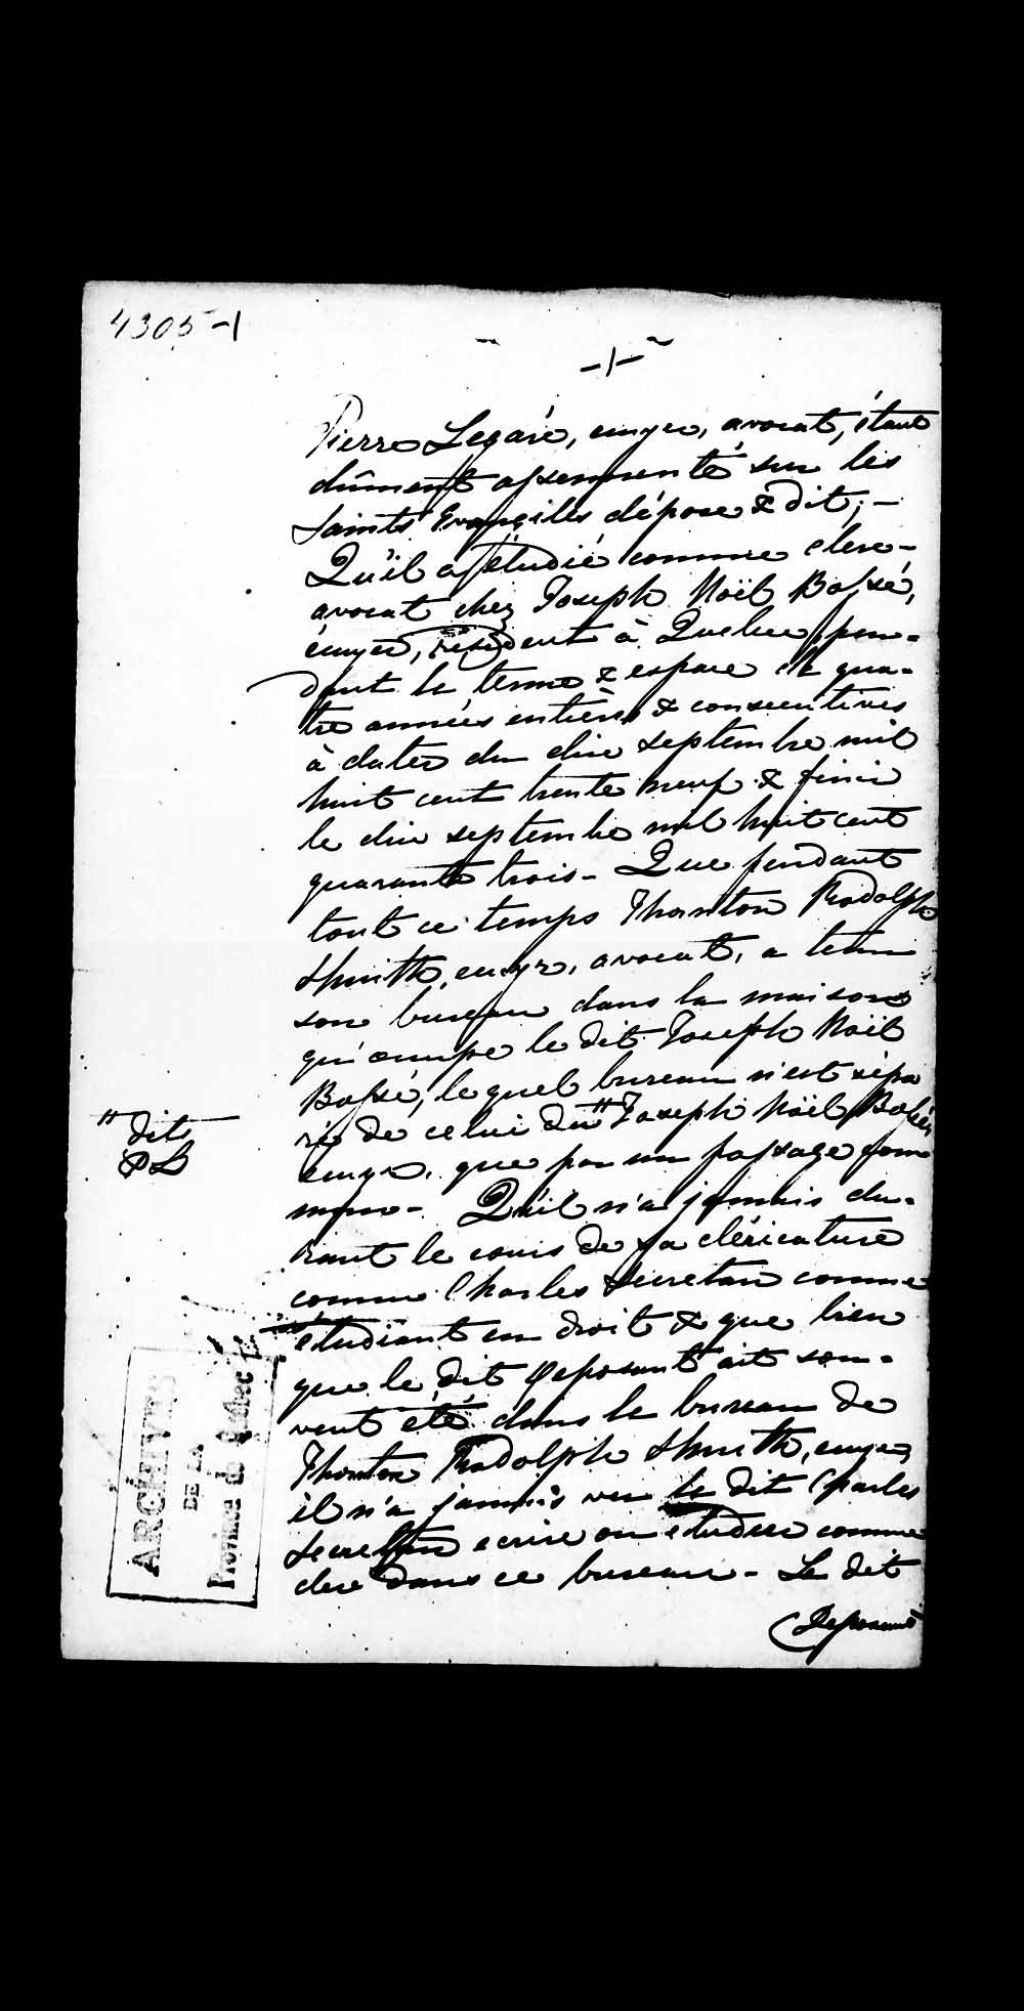 4305-1
-1-
Pierre Legaré, ecuyer, avocat, étant
dûment assermenté sur les
Saints Evangiles dépose & dit; -
Qu'il a étudié comme clerc-
avocat chez Joseph Noël Bossé,
écuyer, résident à Quebec, pen-
dant le terme & espace de qua-
tre années entières & consecutives
à dater du dix septembre mil
huit cent trente neuf & finir
le dix septembre mil huit cent
quarante trois - Que pendant
tout ce temps Thornton Rodolph
Smith, ecuyr, avocat, a tenu
son bureau dans la maison
qu'occupe le dit Joseph Noël
Bossé, lequel bureau n'est sépa
ré de celui du " Joseph Noël Bossé,
ecuyr. que par un passage com
mun - Qu'il n'a jamais du-
rant le cours de sa cléricature
connu Charles Secretan comme
étudiant en droit & que bien
que le dit Deposant ait sou-
vent été dans le bureau de
Thornton Rodolph Smith, ecuyer,
il n'a jamais vu le dit Charles
Secretan ecrire ou etudier comme
clerc dans ce bureau - Le dit
Deposant
" dit
PL
ARCHIVES
DE LA
Province de Québec